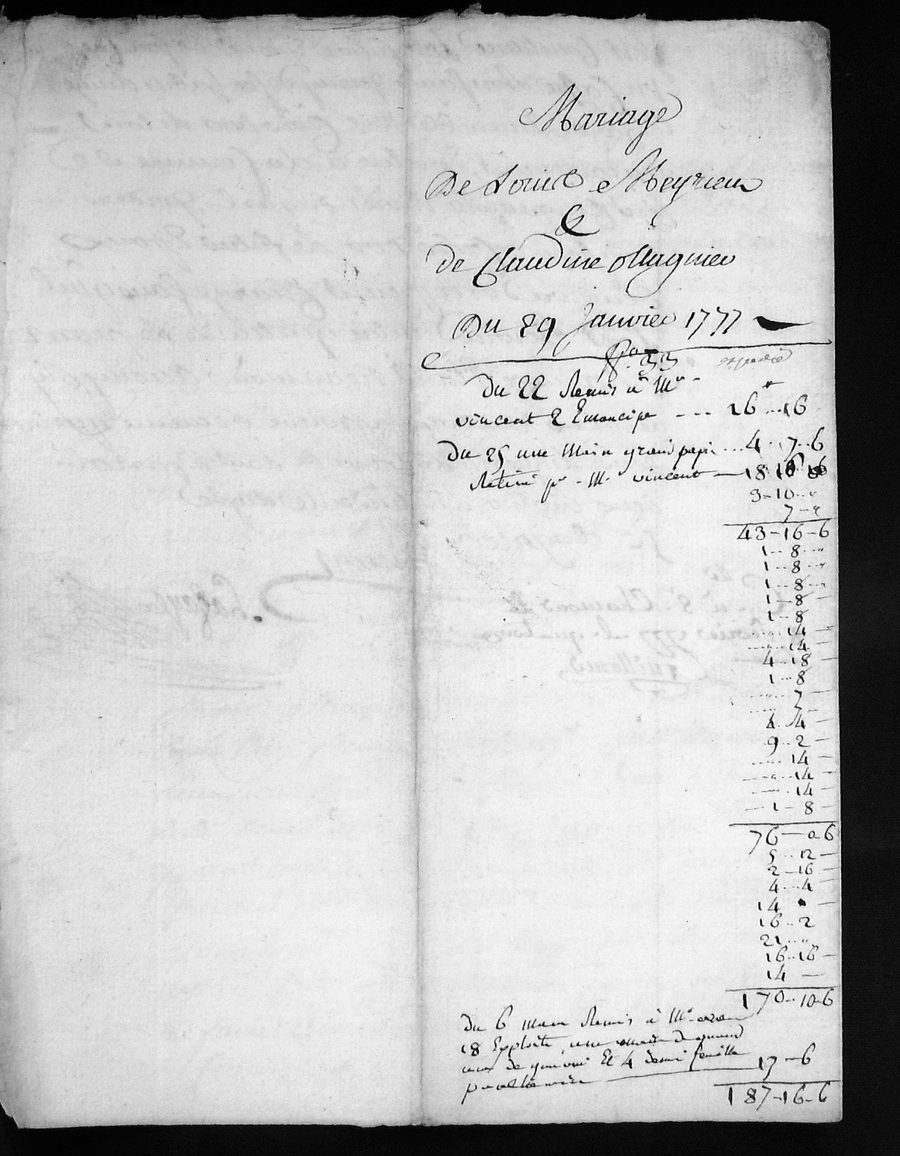 Mariage
De Louis Meyrieu
&
de Claudine Ollagnier
Du 29 Janvier 1777
fo 33
du 22 Remis a Mr
vincent 2 Emancipe - - - 16 .. 16
du 25 une Main grand papier ... 4 .. 7 .. 6
Retiré pr Mr vincent — 18
3 - 10
7
43 - 16 - 6
1 .. 8
1 .. 8
1 .. 8
1 .. 8
1 .. 8
14
14
4 .. 18
1 .. 8
7
7
4 .. 4
9 .. 2
14
14
14
1 .. 8
76 — 0 6
5 .. 12
2 - 16
4 .. 4
14
16 .. 2
21
16 .. 16
14
170 .. 10 - 6
du 6 Mars Remis a Mr
18 Exploits une main de grand
de Et 4 demi feuille
17 - 6
187 - 16 - 6